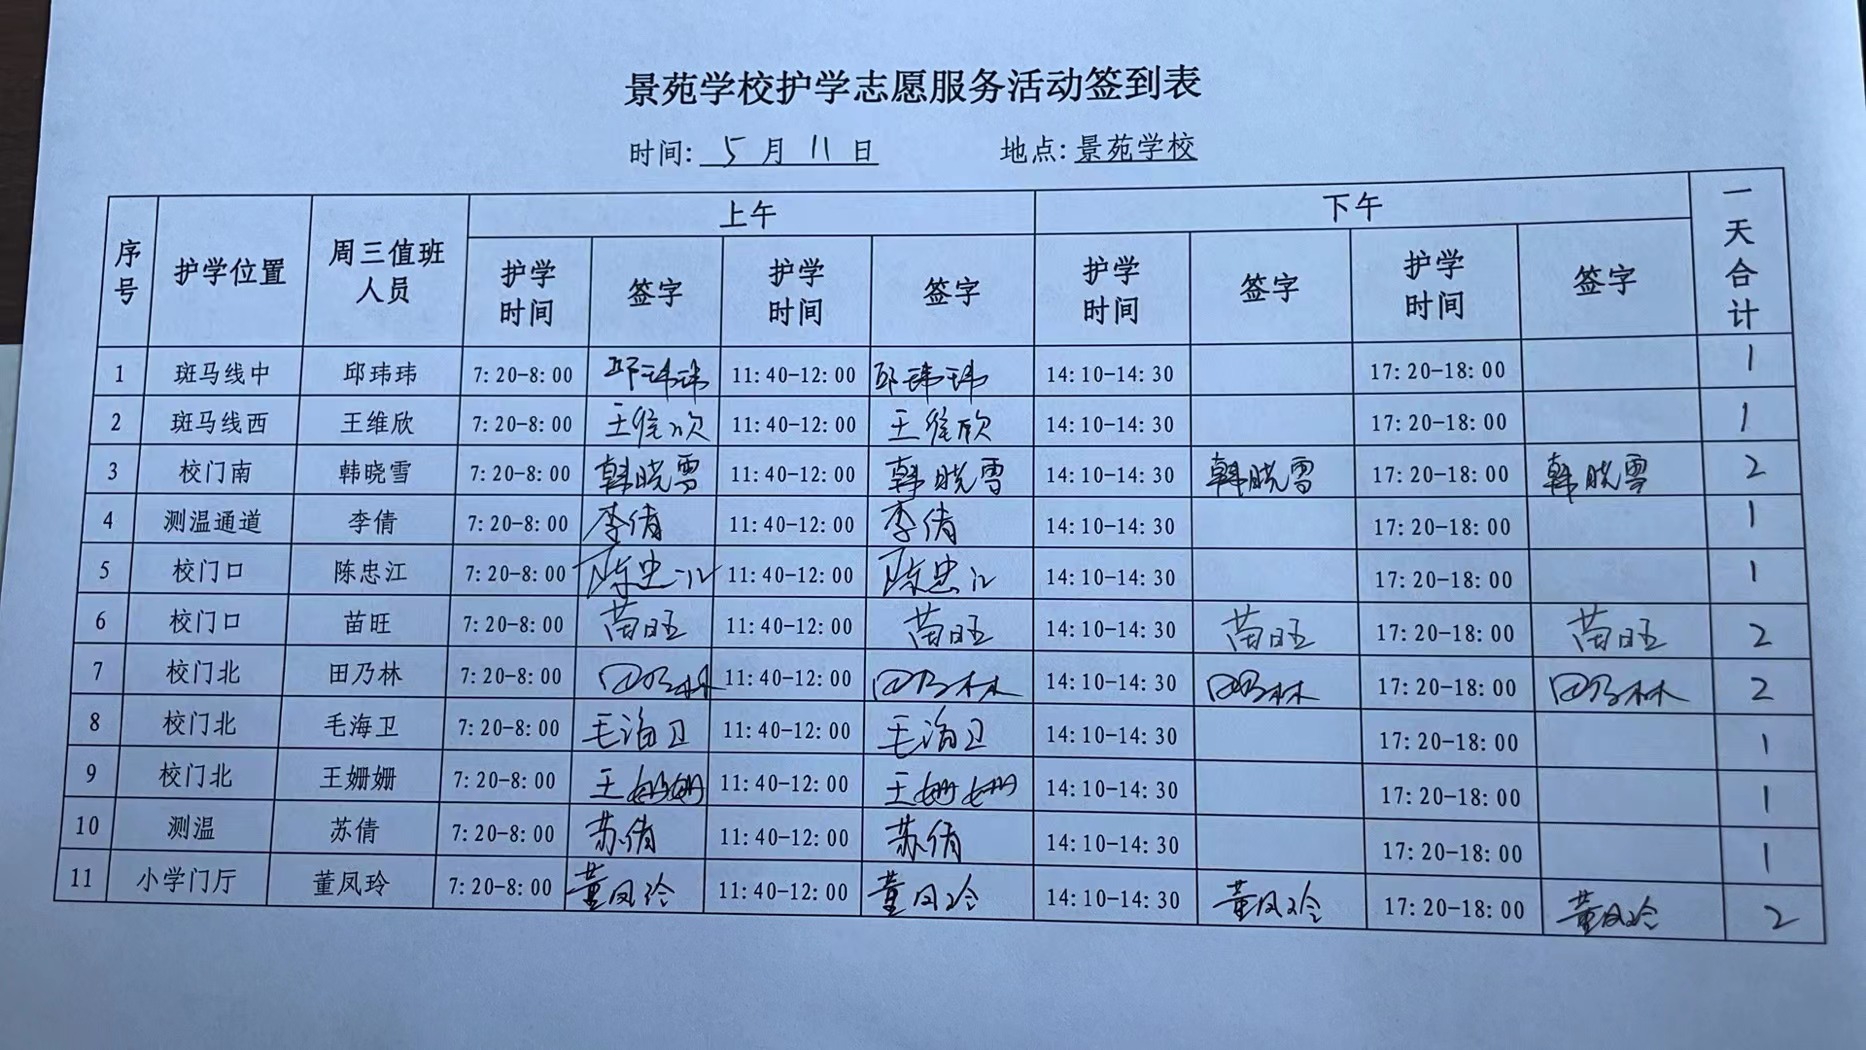 景苑学校护学志愿服务活动签到表
时间: 5 月 11 日 地点: 景苑学校
序号 护学位置 周三值班人员 上午 下午 一天合计
护学时间 签字 护学时间 签字 护学时间 签字 护学时间 签字
1 斑马线中 邱玮玮 7:20-8:00 邱玮玮 11:40-12:00 邱玮玮 14:10-14:30 17:20-18:00 1
2 斑马线西 王维欣 7:20-8:00 王维欣 11:40-12:00 王维欣 14:10-14:30 17:20-18:00 1
3 校门南 韩晓雪 7:20-8:00 韩晓雪 11:40-12:00 韩晓雪 14:10-14:30 韩晓雪 17:20-18:00 韩晓雪 2
4 测温通道 李倩 7:20-8:00 李倩 11:40-12:00 李倩 14:10-14:30 17:20-18:00 1
5 校门口 陈忠江 7:20-8:00 陈忠江 11:40-12:00 陈忠江 14:10-14:30 17:20-18:00 1
6 校门口 苗旺 7:20-8:00 苗旺 11:40-12:00 苗旺 14:10-14:30 苗旺 17:20-18:00 苗旺 2
7 校门北 田乃林 7:20-8:00 田乃林 11:40-12:00 田乃林 14:10-14:30 田乃林 17:20-18:00 田乃林 2
8 校门北 毛海卫 7:20-8:00 毛海卫 11:40-12:00 毛海卫 14:10-14:30 17:20-18:00 1
9 校门北 王姗姗 7:20-8:00 王姗姗 11:40-12:00 王姗姗 14:10-14:30 17:20-18:00 1
10 测温 苏倩 7:20-8:00 苏倩 11:40-12:00 苏倩 14:10-14:30 17:20-18:00 1
11 小学门厅 董凤玲 7:20-8:00 董凤玲 11:40-12:00 董凤玲 14:10-14:30 董凤玲 17:20-18:00 董凤玲 2